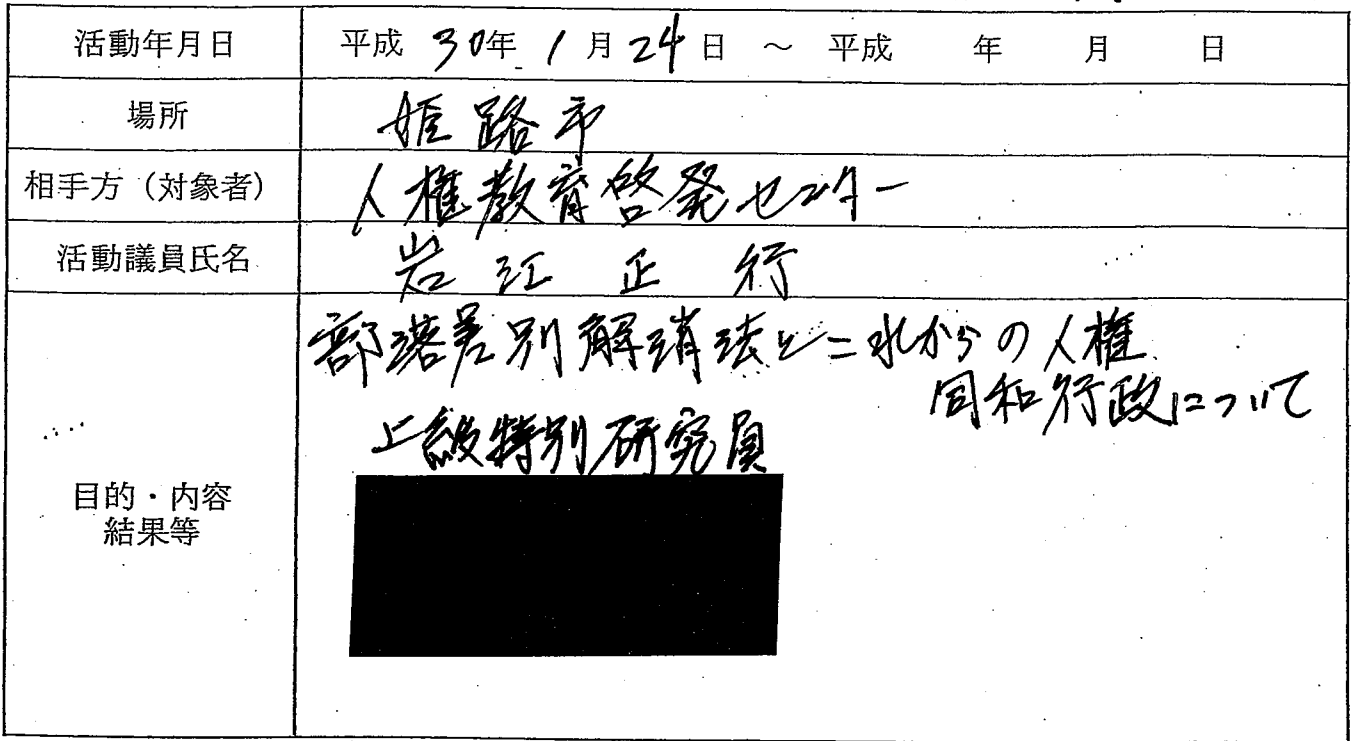 活動年月日 平成 30年 1月 24日 ~ 平成 年 月 日
場所 姫路市
相手方(対象者) 人権教育啓発センター
活動議員氏名 岩江正行
部落差別解消法とこれからの人権
同和行政について
上級特別研究員
目的・内容
結果等